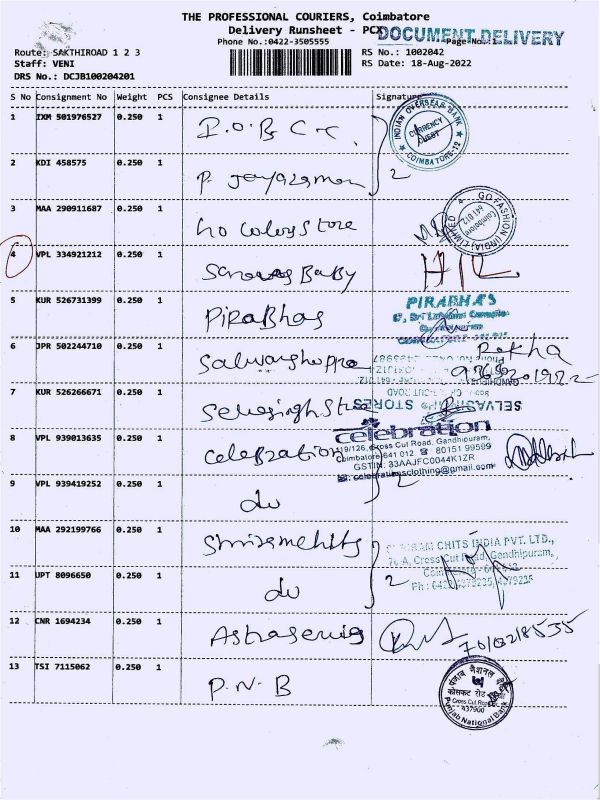 THE PROFESSIONAL COURIERS, Coimbatore
Delivery Runsheet - PCX
DOCUMENT DELIVERY
Phone No.:0422-3505555
Page No.:1
Route: SAKTHIROAD 1 2 3
RS No.: 1002042
Staff: VENI
RS Date: 18-Aug-2022
DRS No.: DCJB100204201
S No Consignment No Weight PCS Consignee Details Signature
1 IXM 501976527 0.250 1 I.O.B C.C.
INDIAN OVERSEAS BANK
CURRENCY CHEST
COIMBATORE-12
2 KDI 458575 0.250 1 P. Jayaraman 2
3 MAA 290911687 0.250 1 Go Colorstore
GO FASHION (INDIA) LIMITED
Coimbatore
641 012
4 VPL 334921212 0.250 1 Saravas Baby
5 KUR 526731399 0.250 1 PiRaBhas
PIRABHA'S
6 JPR 502244710 0.250 1 Salwarshoppe
Rekha
7 KUR 526266671 0.250 1 Selvasingh Store
SELVASINGH STORES
8 VPL 939013635 0.250 1 Celebration
celebration
19/126, Cross Cut Road, Gandhipuram,
Coimbatore 641 012 ☎ 80151 99599
GSTIN: 33AAJFC0044K1ZR
celebrationsclothing@gmail.com
9 VPL 939419252 0.250 1 do 2
10 MAA 292199766 0.250 1 Shriramchits
CHITS INDIA PVT. LTD.,
76 A, Cross Cut Road, Gandhipuram,
11 UPT 8096650 0.250 1 do 2
12 CNR 1694234 0.250 1
13 TSI 7115062 0.250 1 P.N.B
पंजाब नैशनल बैंक
Cross Cut Road
437900
Punjab National Bank